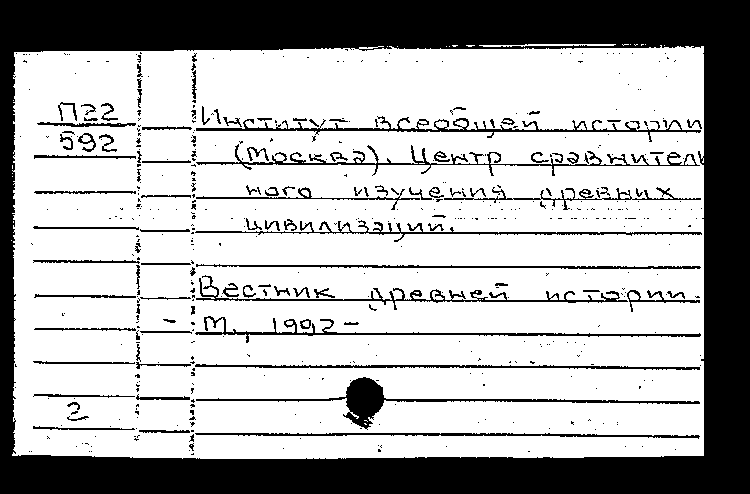 П22
592
Институт всеобщей истории
(Москва). Центр сравнитель
ного изучения древних
цивилизаций.
Вестник древней истории.
- М., 1992-
2